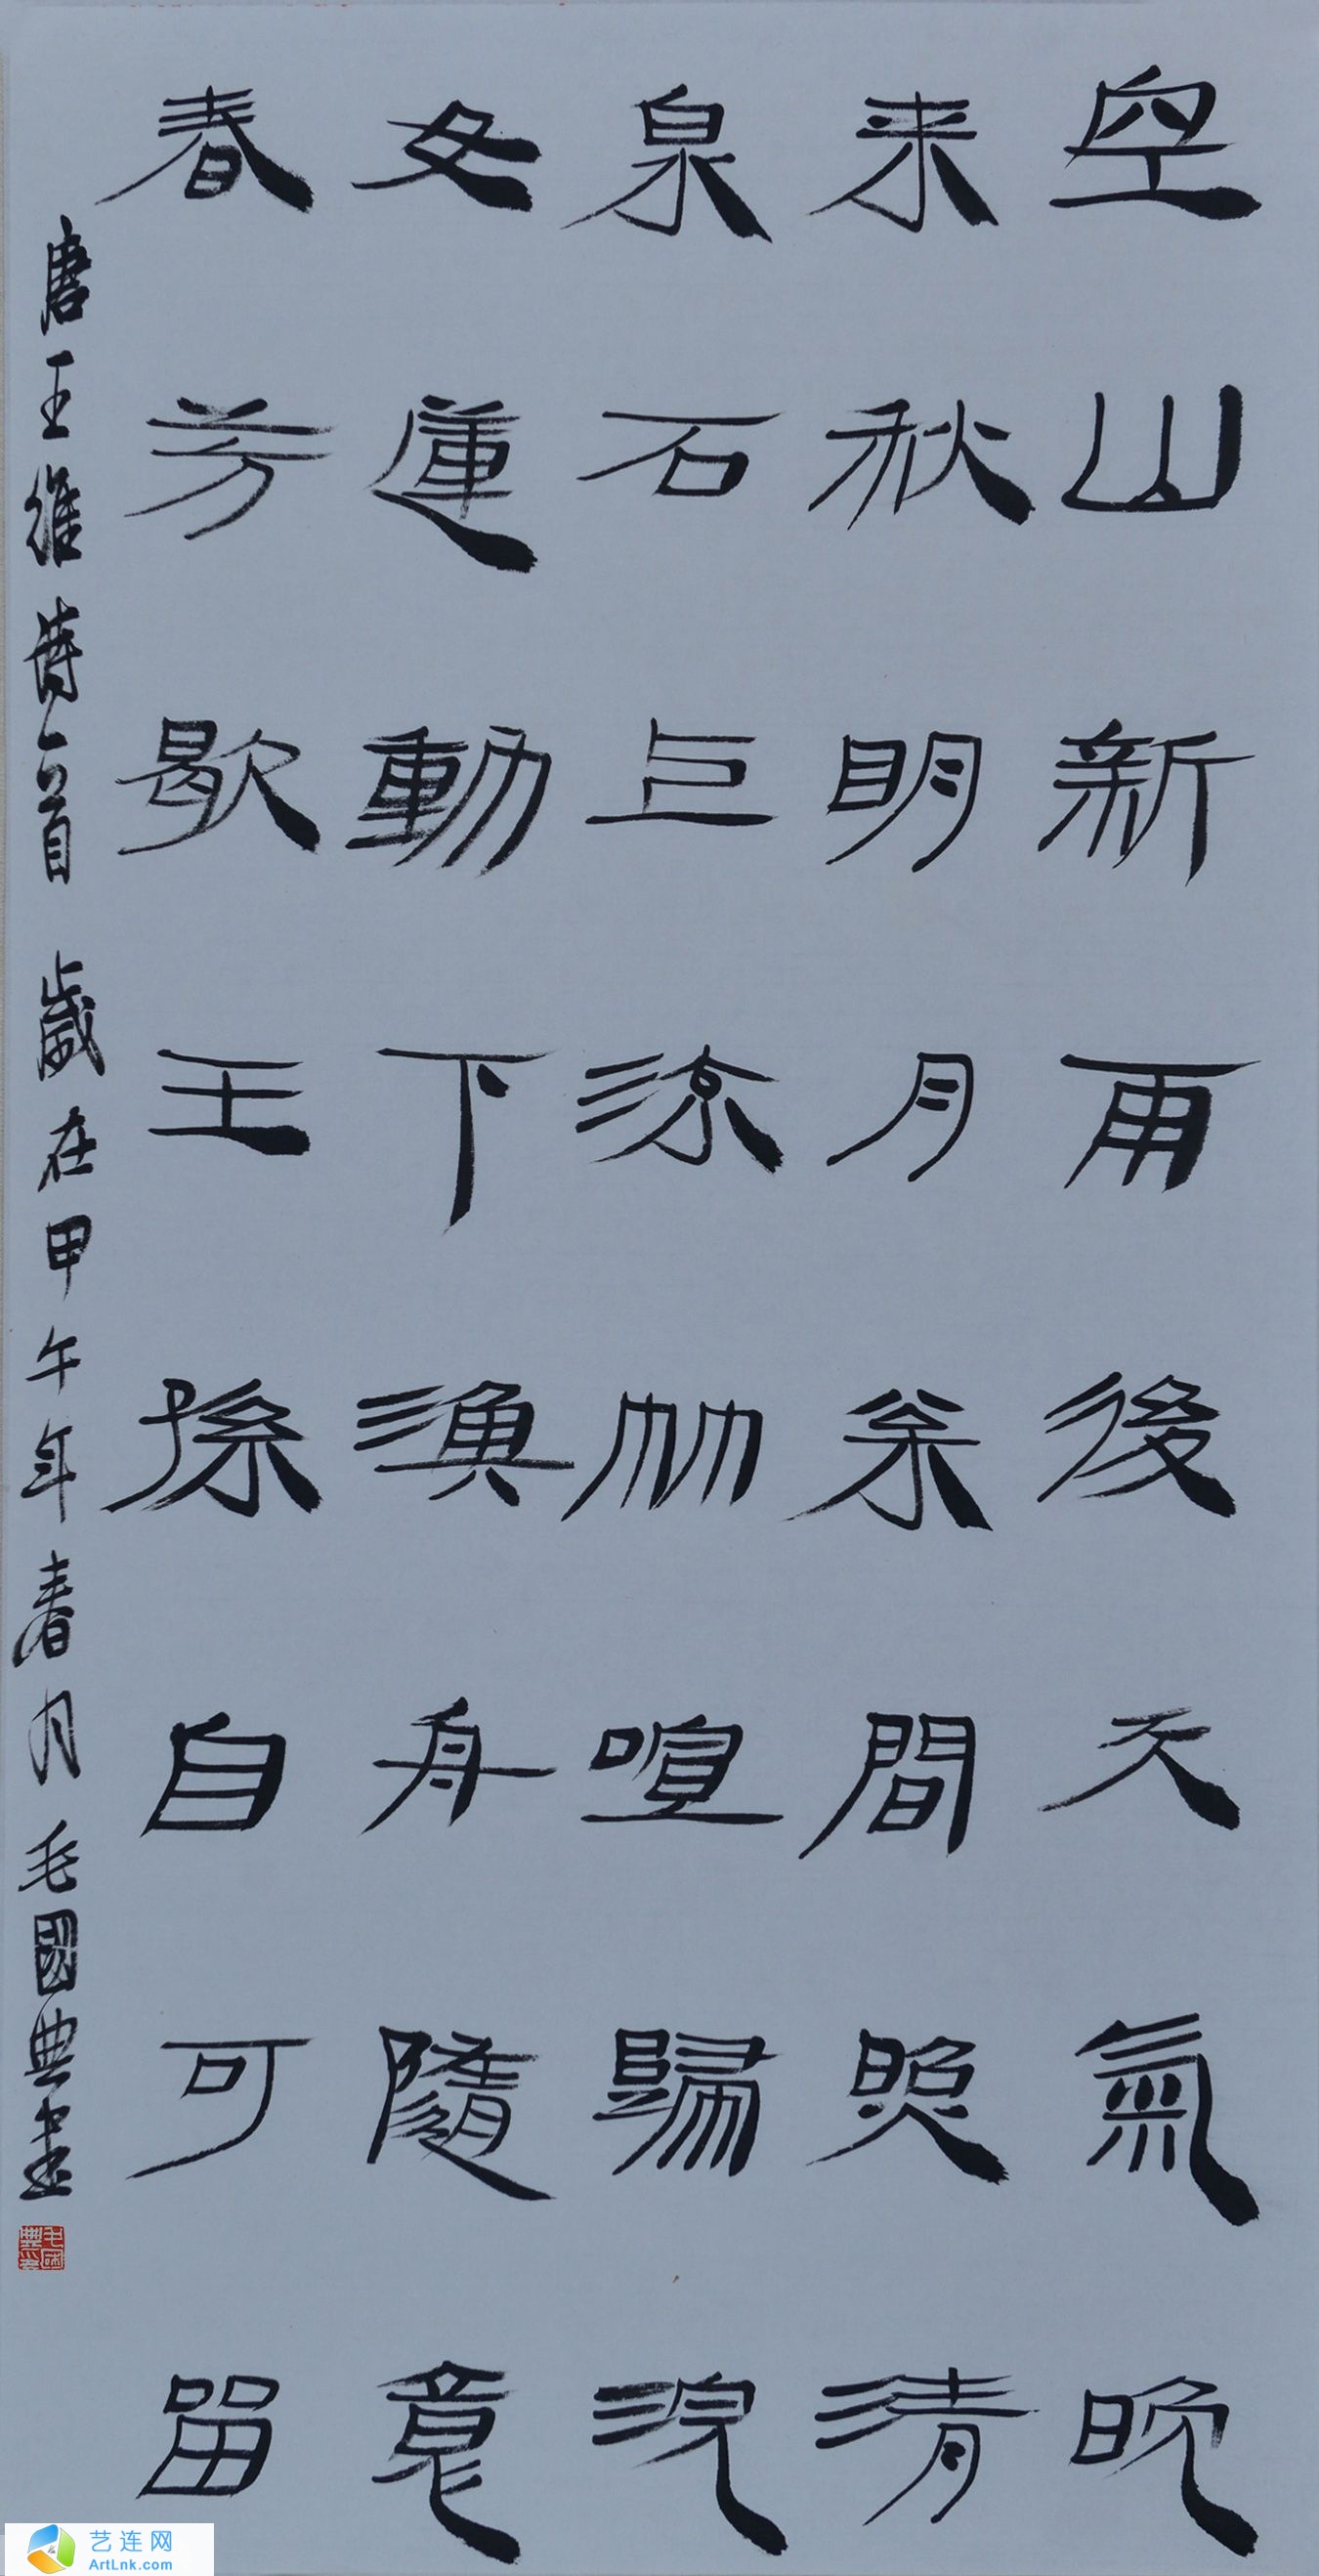 空山新雨後天氣晚
来秋明月枩間照清
泉石上流竹喧歸浣
女蓮動下漁舟隨意
春芳歇王孫自可留
唐王維詩一首 歲在甲午年春月 毛國典書
艺连网
ArtLnk.com